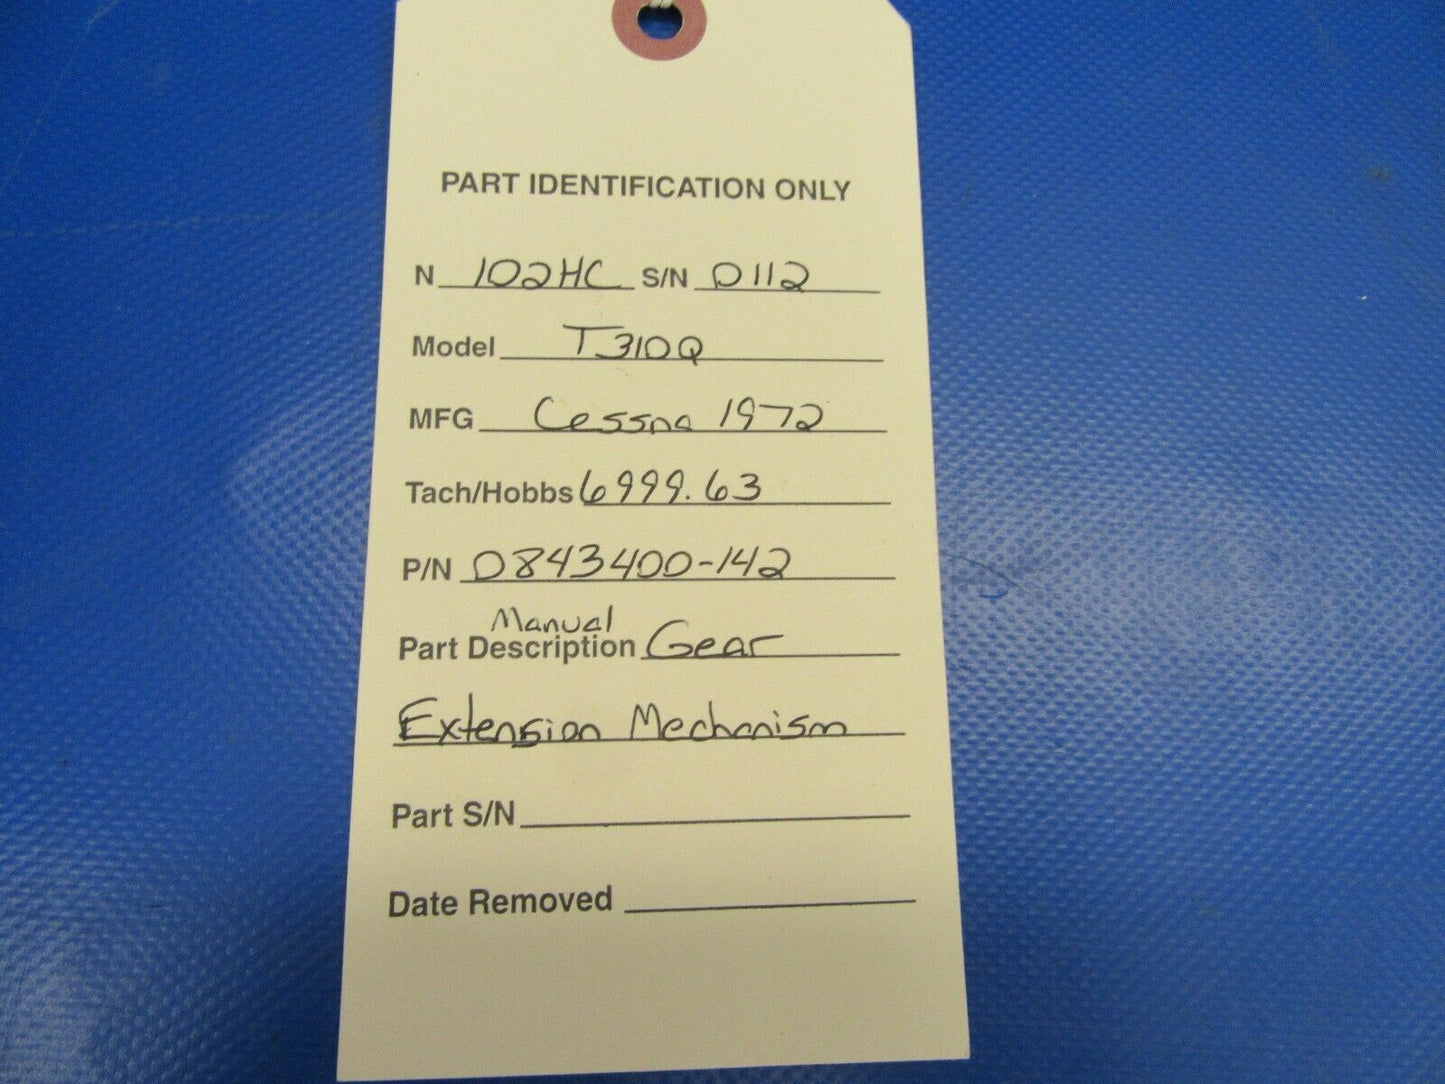 PART IDENTIFICATION ONLY
N 102HC S/N 0112
Model T310Q
MFG Cessna 1972
Tach/Hobbs 6999.63
P/N 0843400-142
Manual
Part Description Gear
Extension Mechanism
Part S/N
Date Removed